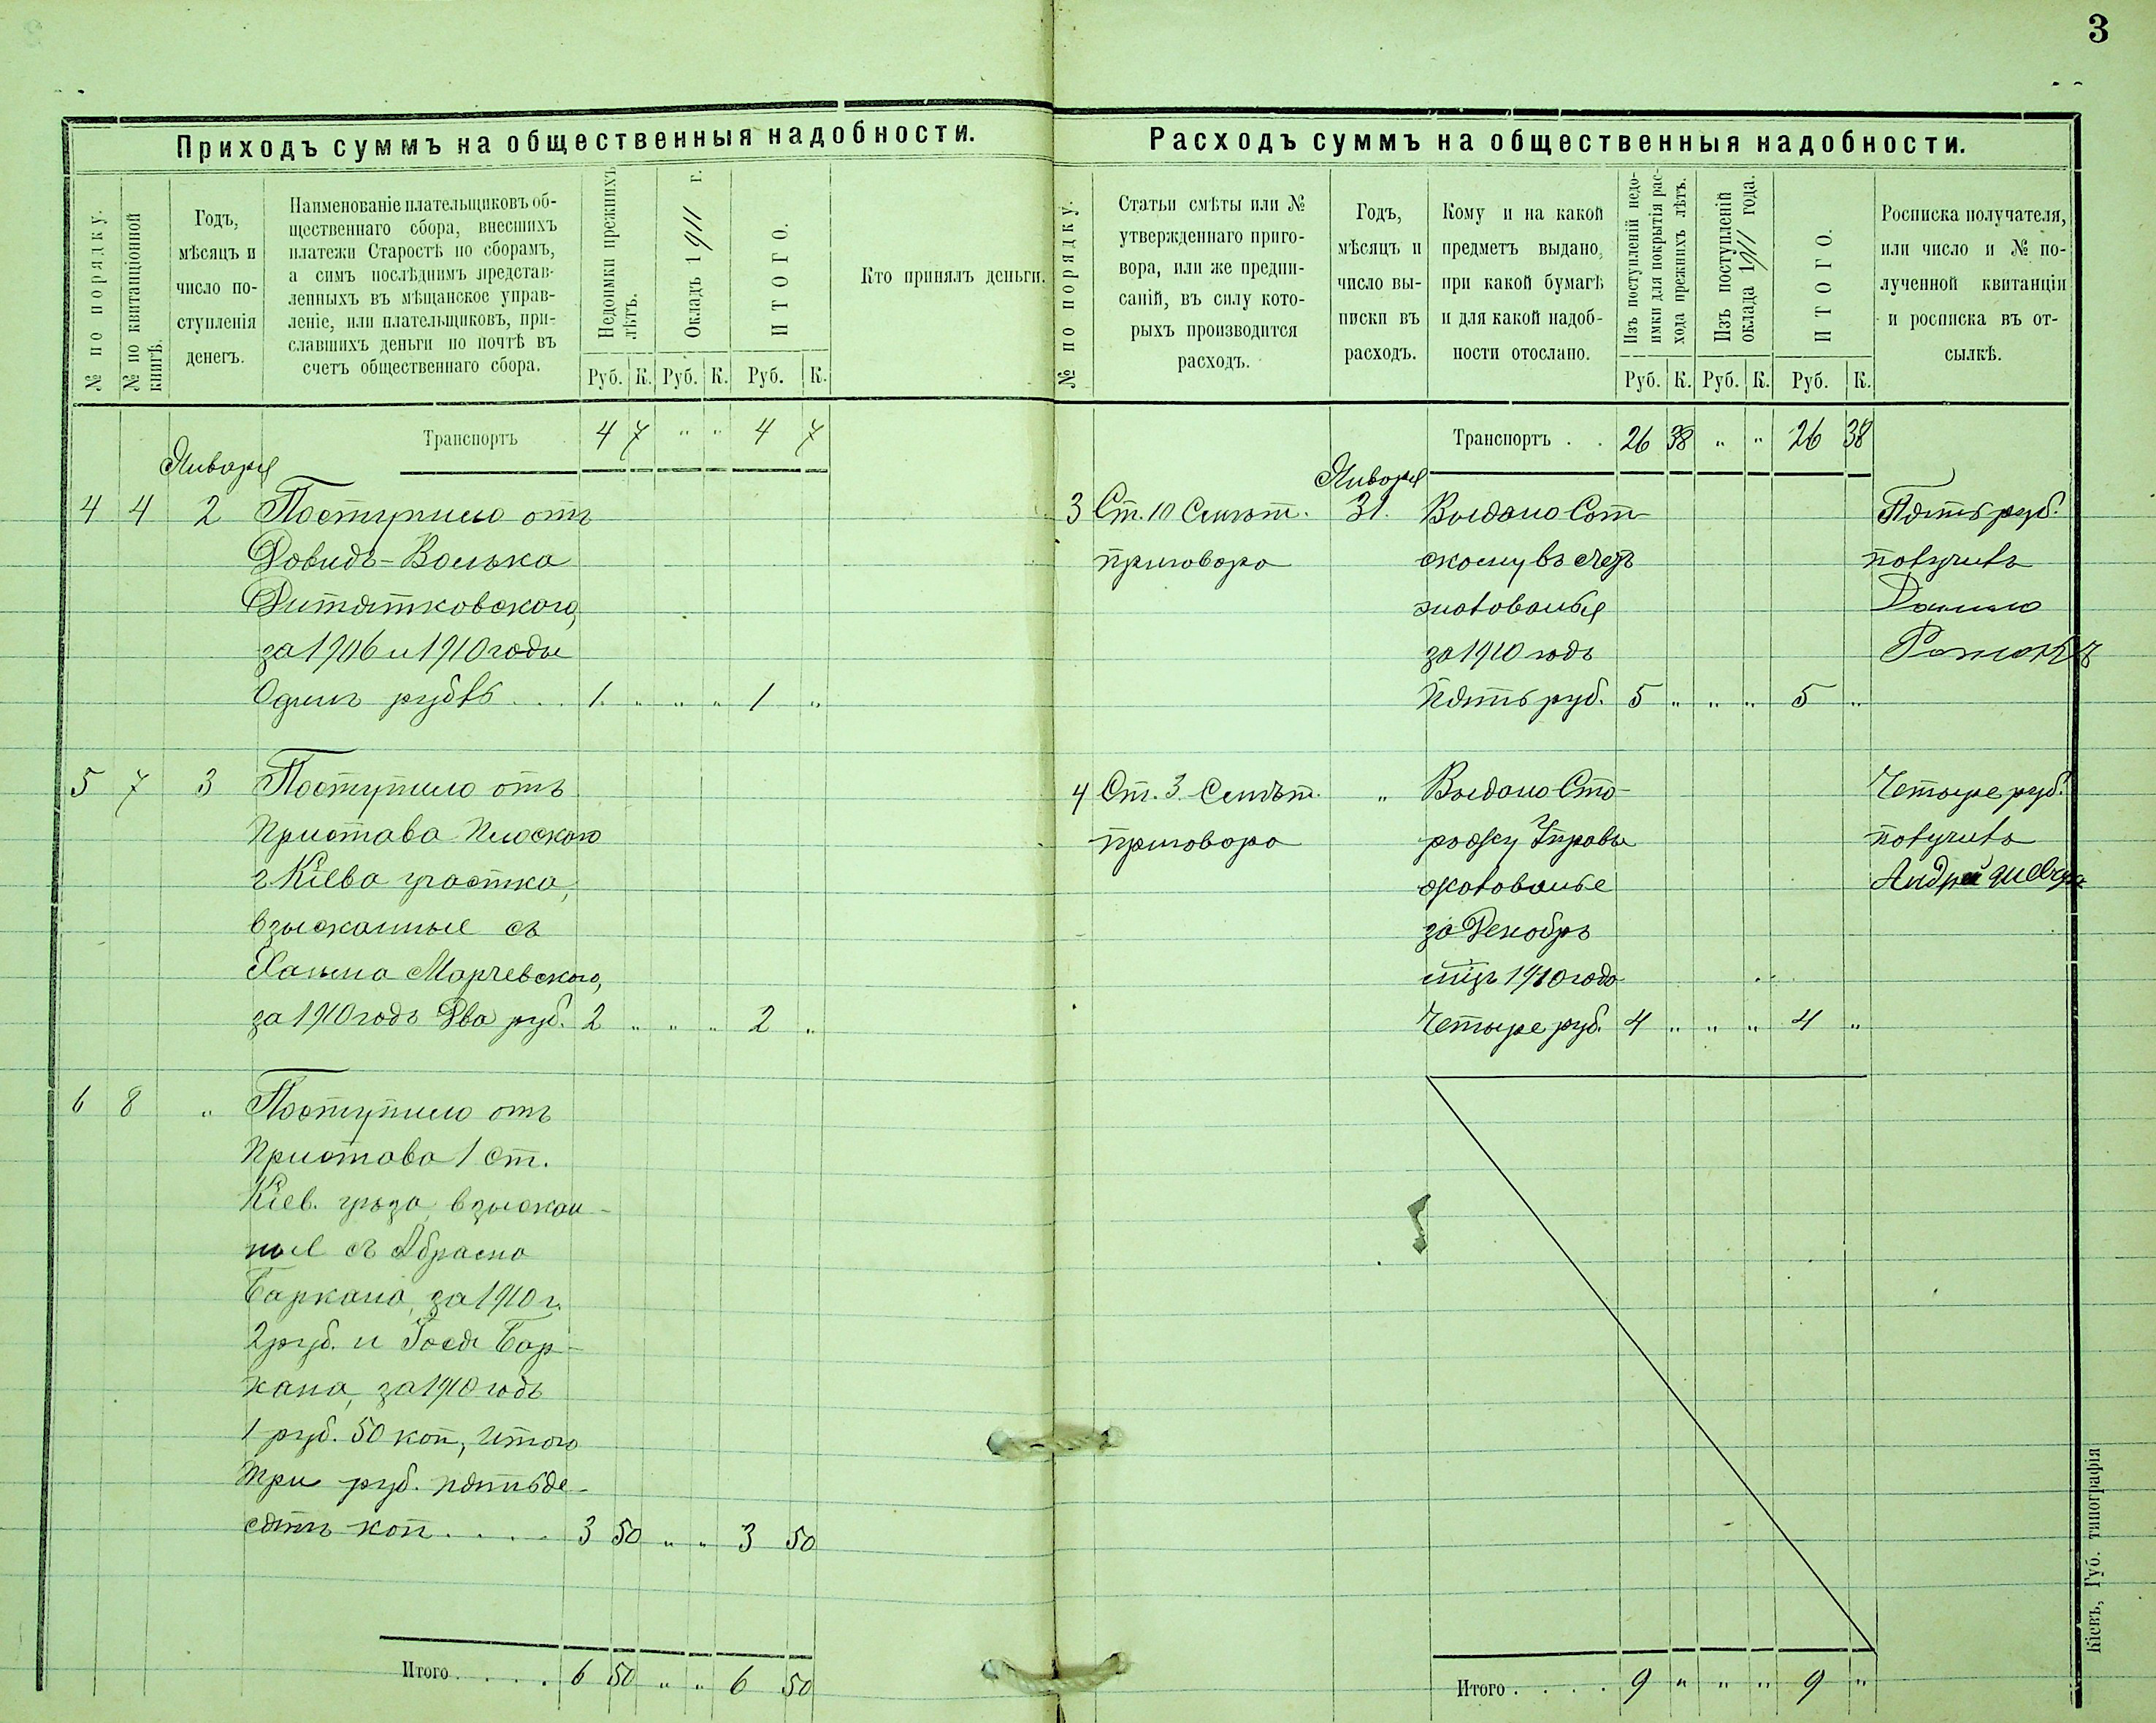 3
Приходъ суммъ на общественныя надобности.
№ по порядку.
№ по квитанціонной
книгѣ.
Годъ,
мѣсяцъ и
число по-
ступленія
денегъ.
Наименованіе плательщиковъ об-
щественнаго сбора, внесшихъ
платежи Старостѣ по сборамъ,
а симъ послѣднимъ представ-
ленныхъ въ мѣщанское управ-
леніе, или плательщиковъ, при-
славшихъ деньги по почтѣ въ
счетъ общественнаго сбора.
Недоимки прежнихъ
лѣтъ.
Окладъ 1911 г.
ИТОГО.
Кто принялъ деньги.
Руб. К. Руб. К. Руб. К.
Транспортъ 4 7 " " 4 7
Января
4 4 2 Поступило отъ
Довидъ-Волька
Дитятковскаго,
за 1906 и 1910 годы
Одинъ рубль . . . 1 " " " 1 "
5 7 3 Поступило отъ
Пристава Плоскаго
г. Кіева участка,
взысканные съ
Хаима Марчевскаго,
за 1910 годъ Два руб. 2 " " " 2 "
6 8 " Поступило отъ
Пристава 1 ст.
Кіев. уѣзда, взыскан-
ные съ Абрама
Баркана, за 1910 г.
2 руб. и Бар-
кана, за 1910 годъ
1 руб. 50 коп, итого
три руб. пятьде-
сятъ коп . . . . 3 50 " " 3 50
Итого . . . . 6 50 " " 6 50
Расходъ суммъ на общественныя надобности.
№ по порядку.
Статьи смѣты или №
утвержденнаго приго-
вора, или же предпи-
саній, въ силу кото-
рыхъ производится
расходъ.
Годъ,
мѣсяцъ и
число вы-
писки въ
расходъ.
Кому и на какой
предметъ выдано,
при какой бумагѣ
и для какой надоб-
ности отослано.
Изъ поступленій недо-
имки для покрытія рас-
хода прежнихъ лѣтъ.
Изъ поступленій
оклада 1911 года.
ИТОГО.
Росписка получателя,
или число и № по-
лученной квитанціи
и росписка въ от-
сылкѣ.
Руб. К. Руб. К. Руб. К.
Транспортъ . . 26 38 " " 26 38
Января
3 Ст. 10 Смѣтн. 31. Выдано Сот- Пять руб.
приговора скому въ счетъ получилъ
жалованья
за 1910 годъ
Пять руб. 5 " " " 5 "
4 Ст. 3. Смѣтн. " Выдано Сто- Четыре руб.
приговора рожу Управы получилъ
жалованье Андрей
за Декабрь
мѣцъ 1910 года
Четыре руб. 4 " " " 4 "
Итого . . . . 9 " " " 9 "
Кіевъ, Губ. типографія